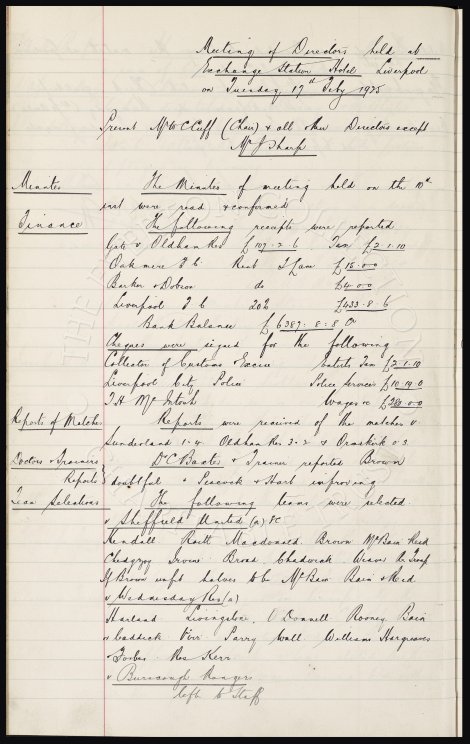 Meeting of Directors held at
Exchange Station Hotel Liverpool
on Tuesday 17th Feby 1925
Present Mr W C Cuff (Chair) & all other Directors except
Mr J Sharp
Minutes The Minutes of meeting held on the 10th
inst were read & confirmed
Finance The following receipts were reported
Gate v Oldham Res £107.2.6 Tax £2.1.10
Oakmere F.C. Rent £15.0.0
Barker & Dobson do £4.0.0
Liverpool F C 20% £433.8.6
Bank Balance £6387.8.8
Cheques were signed for the following
Collector of Customs & Excise Entertts Tax £2.1.10
Liverpool City Police Police Services £10.14.0
T.H. McIntosh Wages &c
Reports of Matches Reports were received of the matches v
Sunderland 1.4 Oldham Res 3.2 & Ormskirk 0.3
Doctors & Trainers Dr C Baxter & Trainer reported Brown
Reports doubtful & Peacock & Hart improving
Team Selections The following teams were selected
v Sheffield United (a) FC
Kendall Raitt Macdonald Brown McBain Reid
Chedgzoy Irvine Broad Chadwick Weaver Troup
If Brown unfit halves to be McBain Bain & Reid
v Wednesday Res (a)
Harland Livingstone O'Donnell Rooney Bain
Caddick Parry Wall Williams Hargreaves
Forbes Res Kerr
v Burscough Rangers
left to Staff